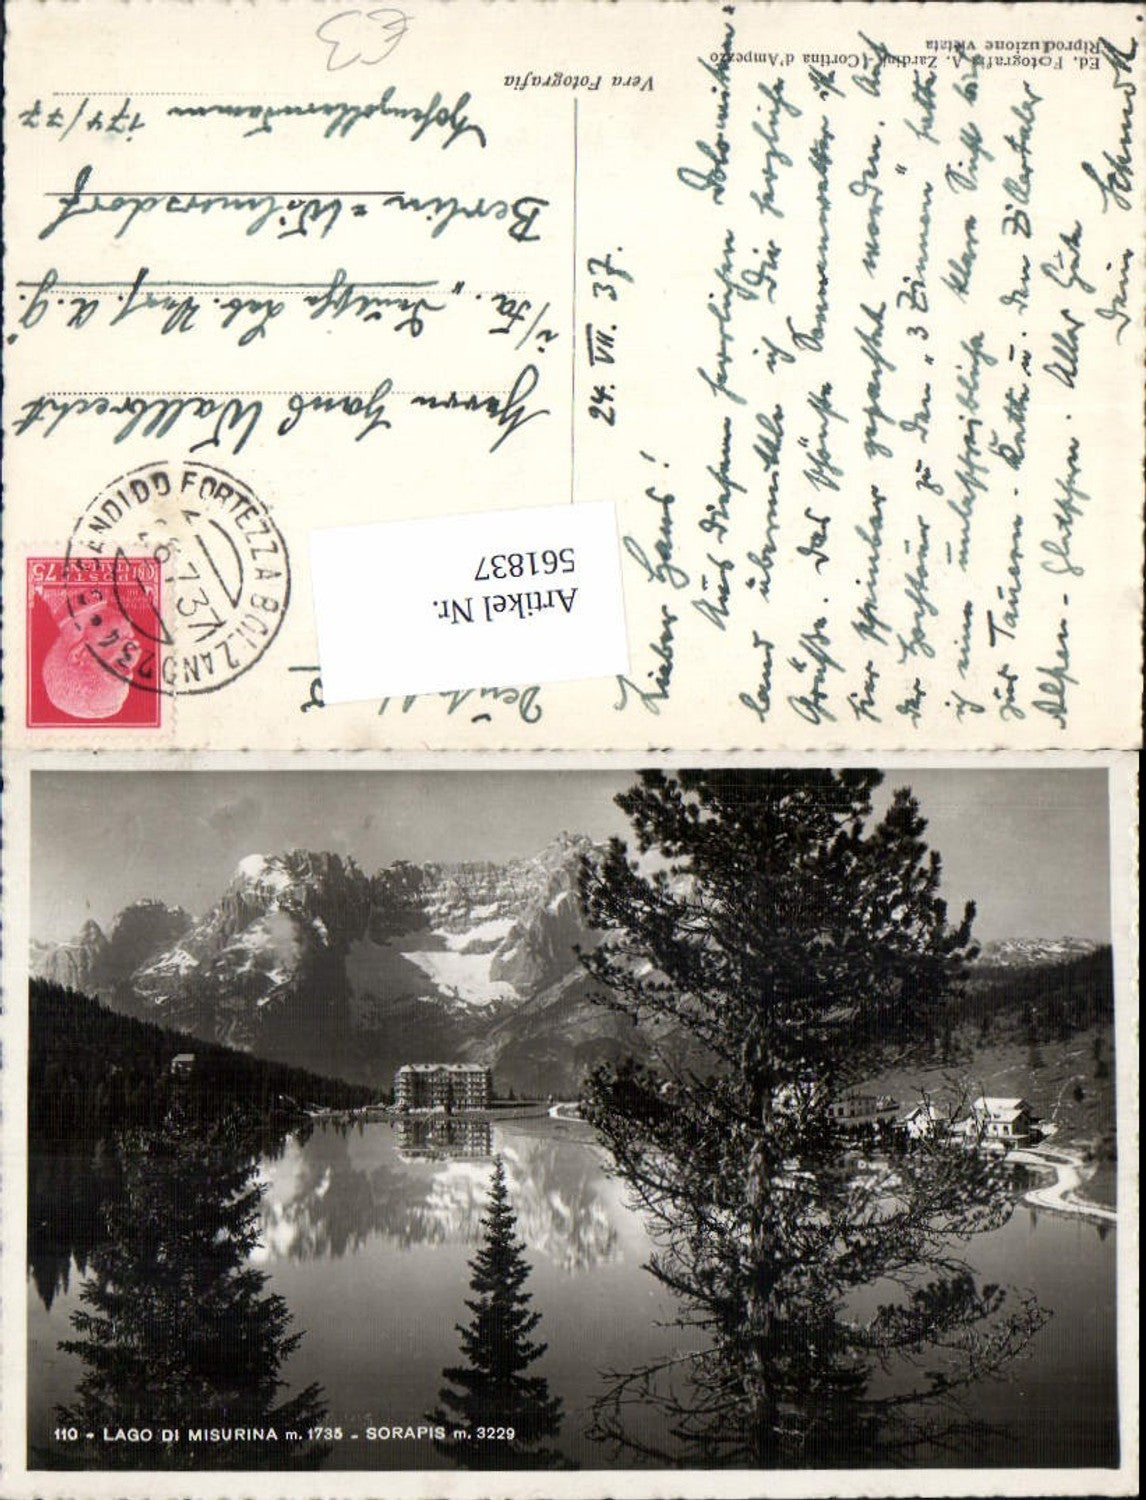 £3
Ed. Fotografia A. Zardini (Cortina d'Ampezzo
Riproduzione vietata
Vera Fotografia
24. VII. 37.
Lieber Hans!
Aus diesem herrlichen Dolomiten-
land übermittle ich Dir herzliche
Grüsse. Das schönste Sommerwetter ist
hier scheinbar gepachtet worden. Auf
der Hochtour zu den „3 Zinnen" hatte
ich eine unbeschreibliche klare Sicht bis
zur Tauern-Kette u. den Zillertaler
Alpen-Gletschern. Alles Gute
Dein
Herrn Hans Wallbrecht
i/Fa. „Deutsche A.G."
Berlin=Wilmersdorf
Hohenzollerndamm
174/77
S. CANDIDO FORTEZZA BOLZANO 234
POSTE ITALIANE
75
Artikel Nr.
561837
110 - LAGO DI MISURINA m. 1735 - SORAPIS m. 3229